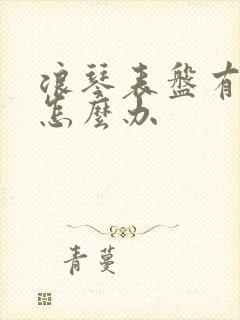 浪琴表盤有
怎麼办
青蔓